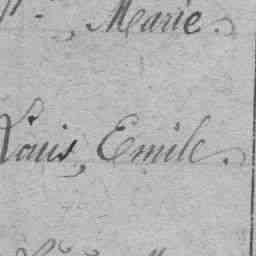 , Marie.
Louis, Emile.